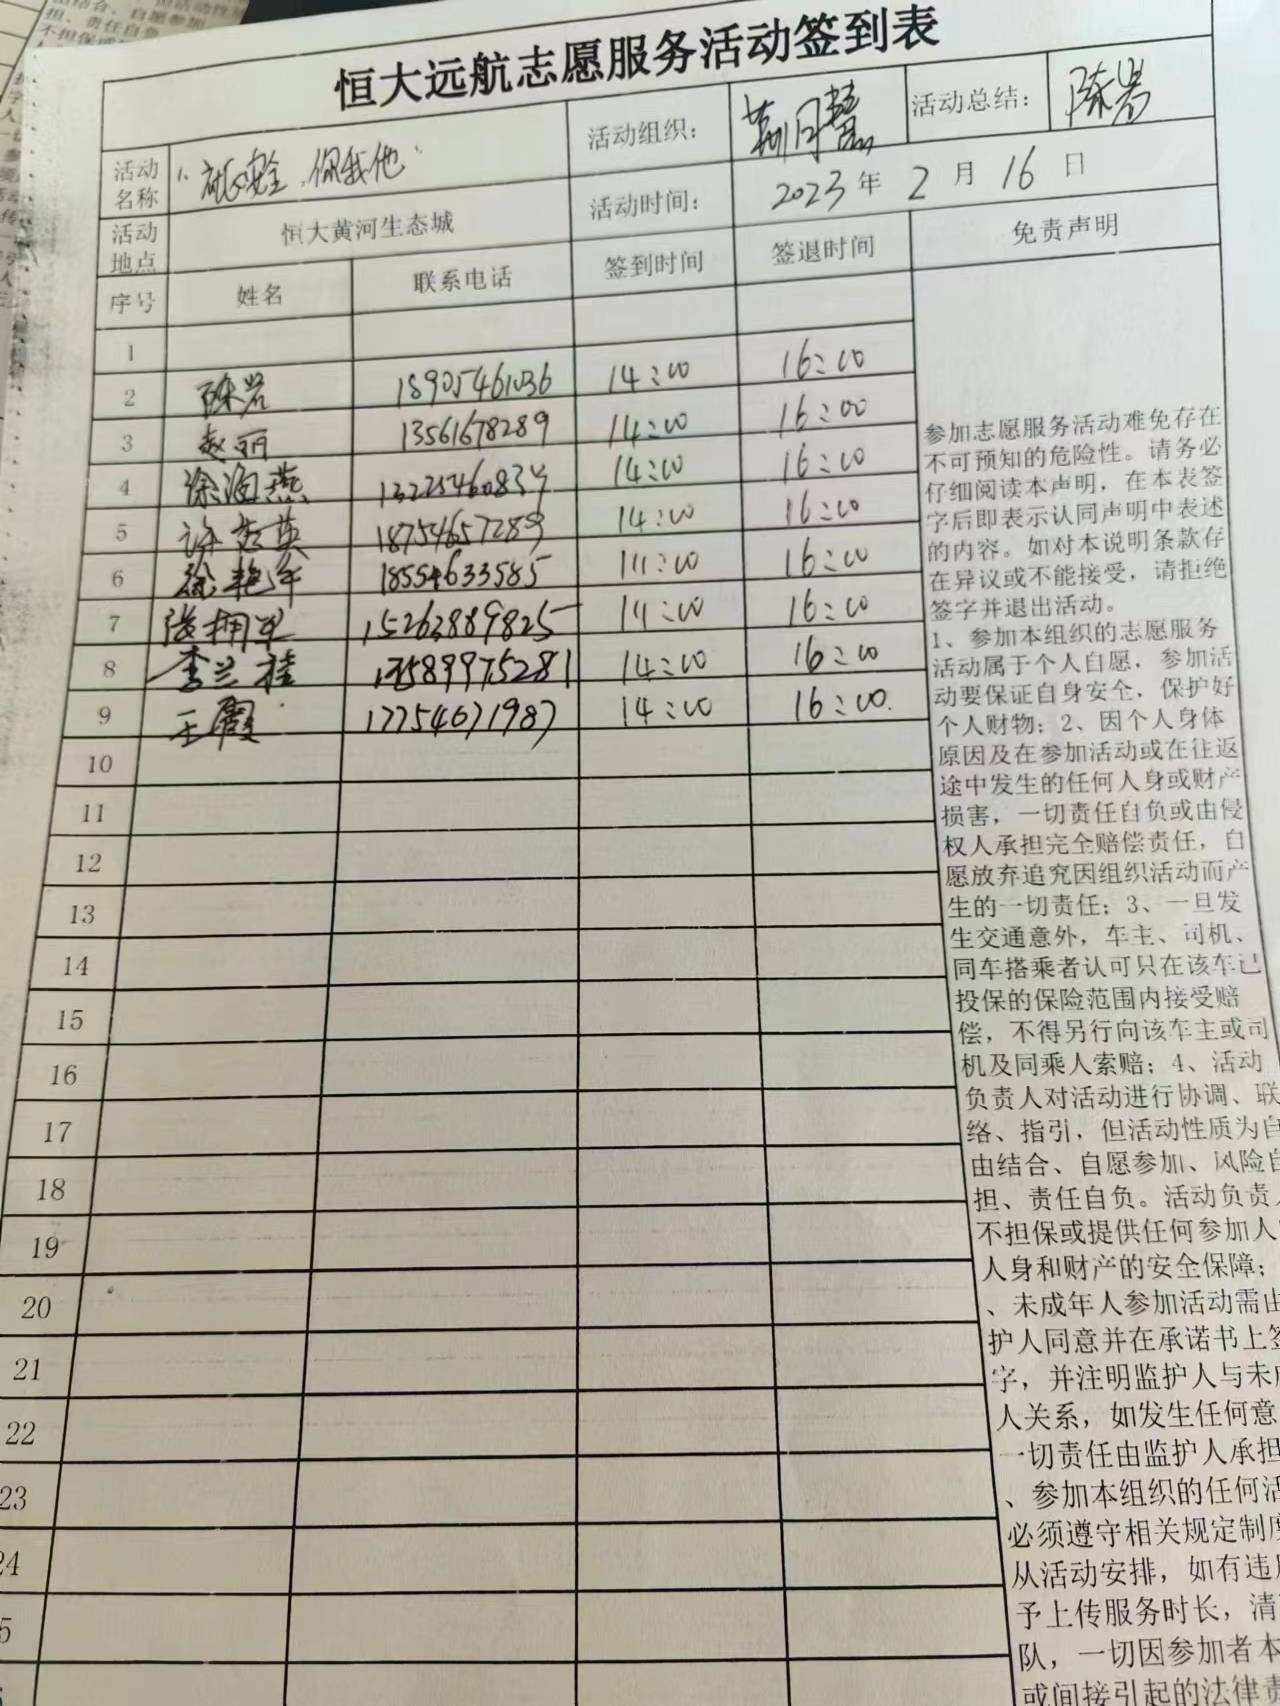 恒大远航志愿服务活动签到表
活动名称 1. 安全,你我他. 活动组织: 慧 活动总结: 陈岩
活动地点 恒大黄河生态城 活动时间: 2023年 2月 16日
序号 姓名 联系电话 签到时间 签退时间 免责声明
1
2 陈岩 18905461036 14:00 16:00
3 赵丽 13561678289 14:00 16:00
4 徐海燕 13225460834 14:00 16:00
5 许英 18754657289 14:00 16:00
6 徐艳华 18554633585 14:00 16:00
7 张拥军 15263889825 14:00 16:00
8 李兰桂 14:00 16:00
9 王霞 17754671987 14:00 16:00.
10
11
12
13
14
15
16
17
18
19
20
21
22
23
24
5
参加志愿服务活动难免存在
不可预知的危险性。请务必
仔细阅读本声明,在本表签
字后即表示认同声明中表述
的内容。如对本说明条款存
在异议或不能接受,请拒绝
签字并退出活动。
1、参加本组织的志愿服务
活动属于个人自愿,参加活
动要保证自身安全,保护好
个人财物;2、因个人身体
原因及在参加活动或在往返
途中发生的任何人身或财产
损害,一切责任自负或由侵
权人承担完全赔偿责任,自
愿放弃追究因组织活动而产
生的一切责任;3、一旦发
生交通意外,车主、司机、
同车搭乘者认可只在该车已
投保的保险范围内接受赔
偿,不得另行向该车主或司
机及同乘人索赔;4、活动
负责人对活动进行协调、联
络、指引,但活动性质为自
由结合、自愿参加、风险自
担、责任自负。活动负责人
不担保或提供任何参加人
人身和财产的安全保障;
、未成年人参加活动需由
护人同意并在承诺书上签
字,并注明监护人与未成
人关系,如发生任何意
一切责任由监护人承担
、参加本组织的任何活
必须遵守相关规定制度
从活动安排,如有违
予上传服务时长,清
队,一切因参加者本
或间接引起的法律责